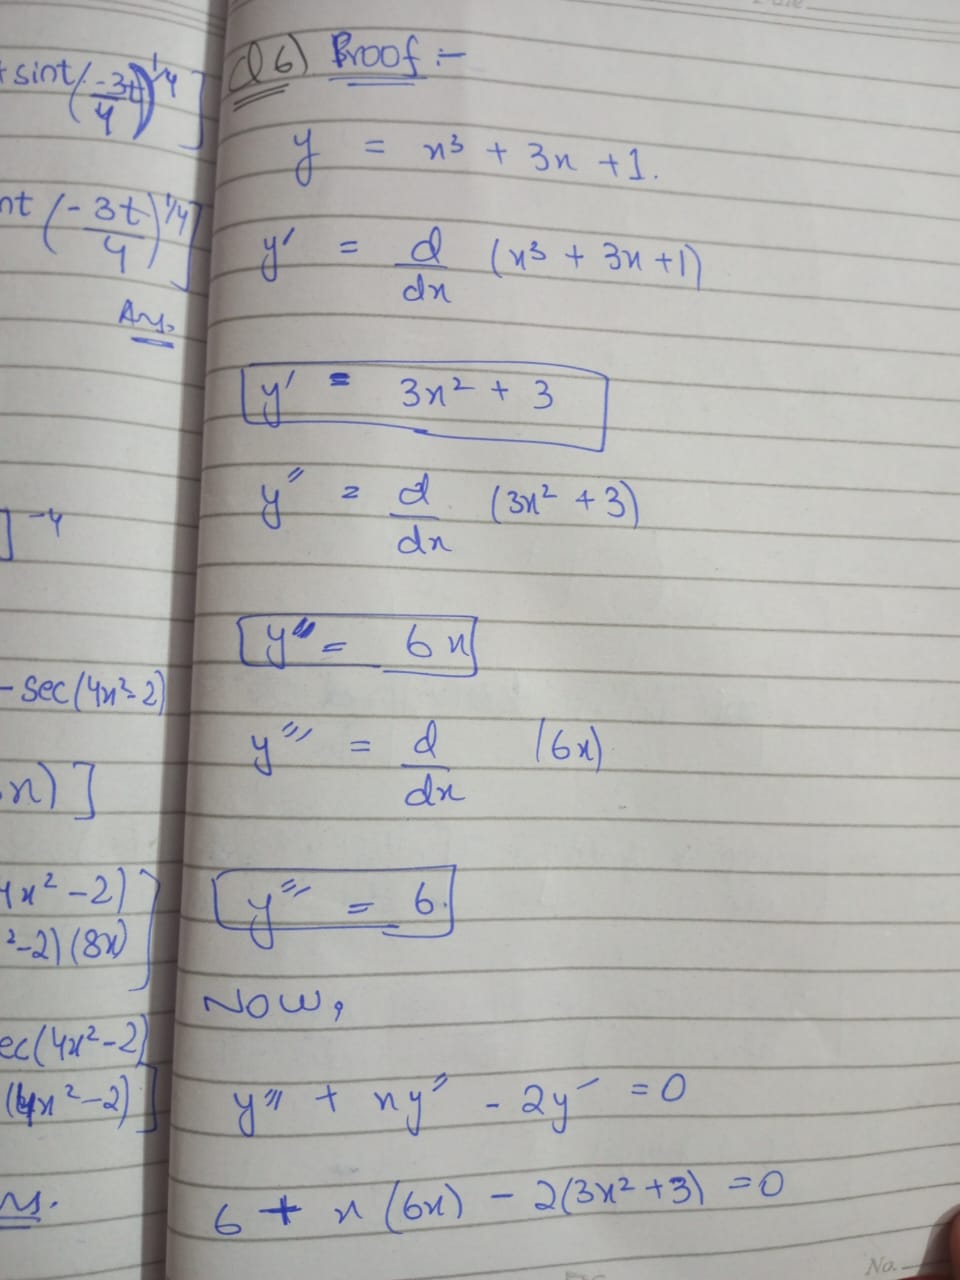 + sint(-3t/4)^1/4]
nt (-3t/4)^1/4]
Ans.
]^-4
- sec(4x²-2)
x)]
4x²-2)
²-2)(8x)]
ec(4x²-2)
(4x²-2)]
ns.
Q6) Proof :-
y = x³ + 3x + 1.
y' = d/dx (x³ + 3x + 1)
y' = 3x² + 3
y'' = d/dx (3x² + 3)
y'' = 6x
y''' = d/dx (6x)
y''' = 6.
NOW,
y''' + xy'' - 2y' = 0
6 + x(6x) - 2(3x² + 3) = 0
No.